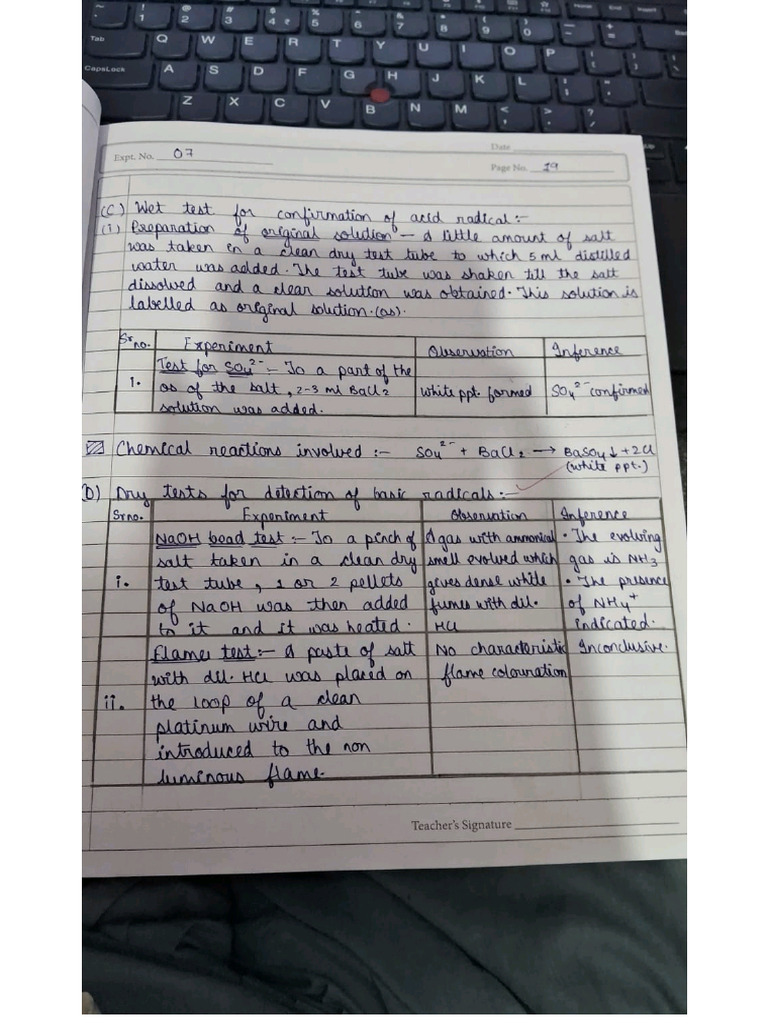 ! @ # $ % ^ & * ( )
1 2 3 4 ₹ 5 6 7 8 9 0
Tab Q W E R T Y U I O P
CapsLock A S D F G H J K L
Z X C V B N M < > ?
Expt. No. 07
Date
Page No. 19
(C) Wet test for confirmation of acid radical :-
(i) Preparation of original solution — A little amount of salt
was taken in a clean dry test tube to which 5 ml distilled
water was added. The test tube was shaken till the salt
dissolved and a clear solution was obtained. This solution is
labelled as original solution. (os).
Sr no. Experiment Observation Inference
1. Test for SO₄²⁻ :- To a part of the
os of the salt, 2-3 ml BaCl₂ white ppt. formed SO₄²⁻ confirmed
solution was added.
Chemical reactions involved :- SO₄²⁻ + BaCl₂ → BaSO₄↓ + 2Cl
(white ppt.)
D) Dry tests for detection of basic radicals :-
Sr no. Experiment Observation Inference
NaOH bead test :- To a pinch of A gas with ammonical • The evolving
salt taken in a clean dry smell evolved which gas is NH3
i. test tube, 1 or 2 pellets gives dense white • The presence
of NaOH was then added fumes with dil. of NH₄⁺
to it and it was heated. HCl indicated.
Flames test :- A paste of salt No characteristic Inconclusive.
with dil. HCl was placed on flame colouration
ii. the loop of a clean
platinum wire and
introduced to the non
luminous flame.
Teacher's Signature